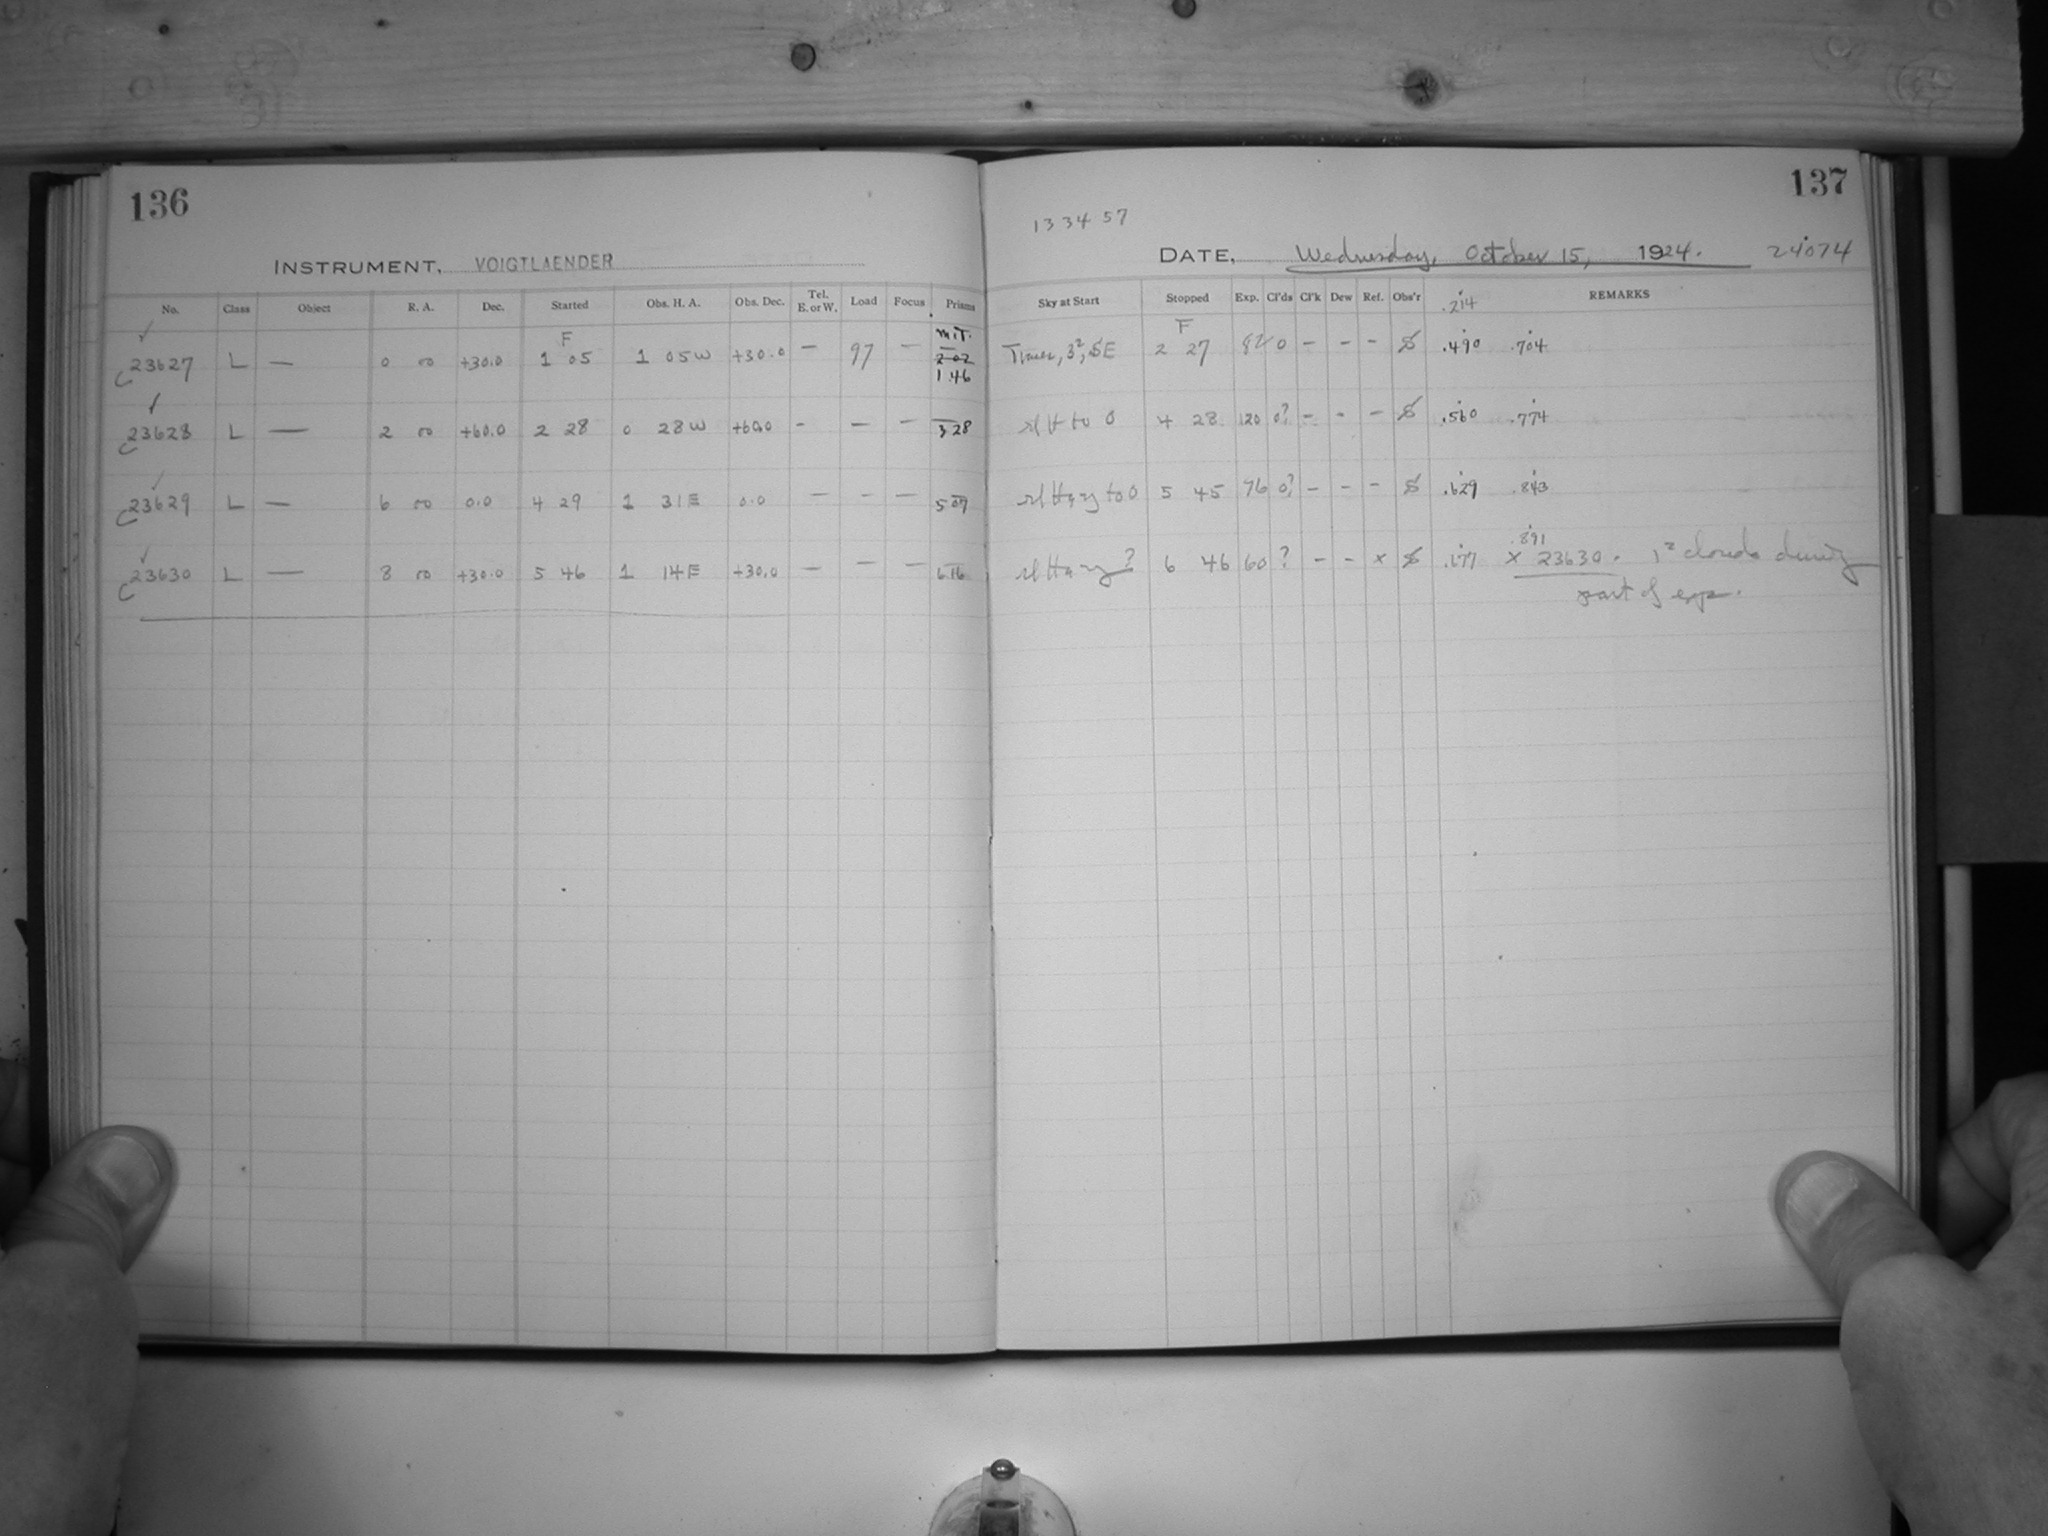 136
INSTRUMENT, VOIGTLAENDER
No. Class Object R. A. Dec. Started Obs. H. A. Obs. Dec. Tel. E. or W. Load Focus Prisms
F M.T.
23627 L — 0 00 +30.0 1 05 1 05 W +30.0 — 97 — 2 02
1.46
23628 L — 2 00 +60.0 2 28 0 28 W +60.0 - — — 3 28
23629 L — 6 00 0.0 4 29 1 31 E 0.0 — — — 5 07
23630 L — 8 00 +30.0 5 46 1 14 E +30.0 — — — 6 16
137
13 34 57
DATE, Wednesday, October 15, 1924. 24074
Sky at Start Stopped Exp. Cl'ds Cl'k Dew Ref. Obs'r .214 REMARKS
F
Times, 3², SE 2 27 82 0 - - - S .490 .704
to 0 4 28 120 0? - - - S .560 .774
to 0 5 45 76 0? - - - S .629 .843
.891
? 6 46 60 ? - - x S .677 x 23630. 1² clouds during
part of exp.